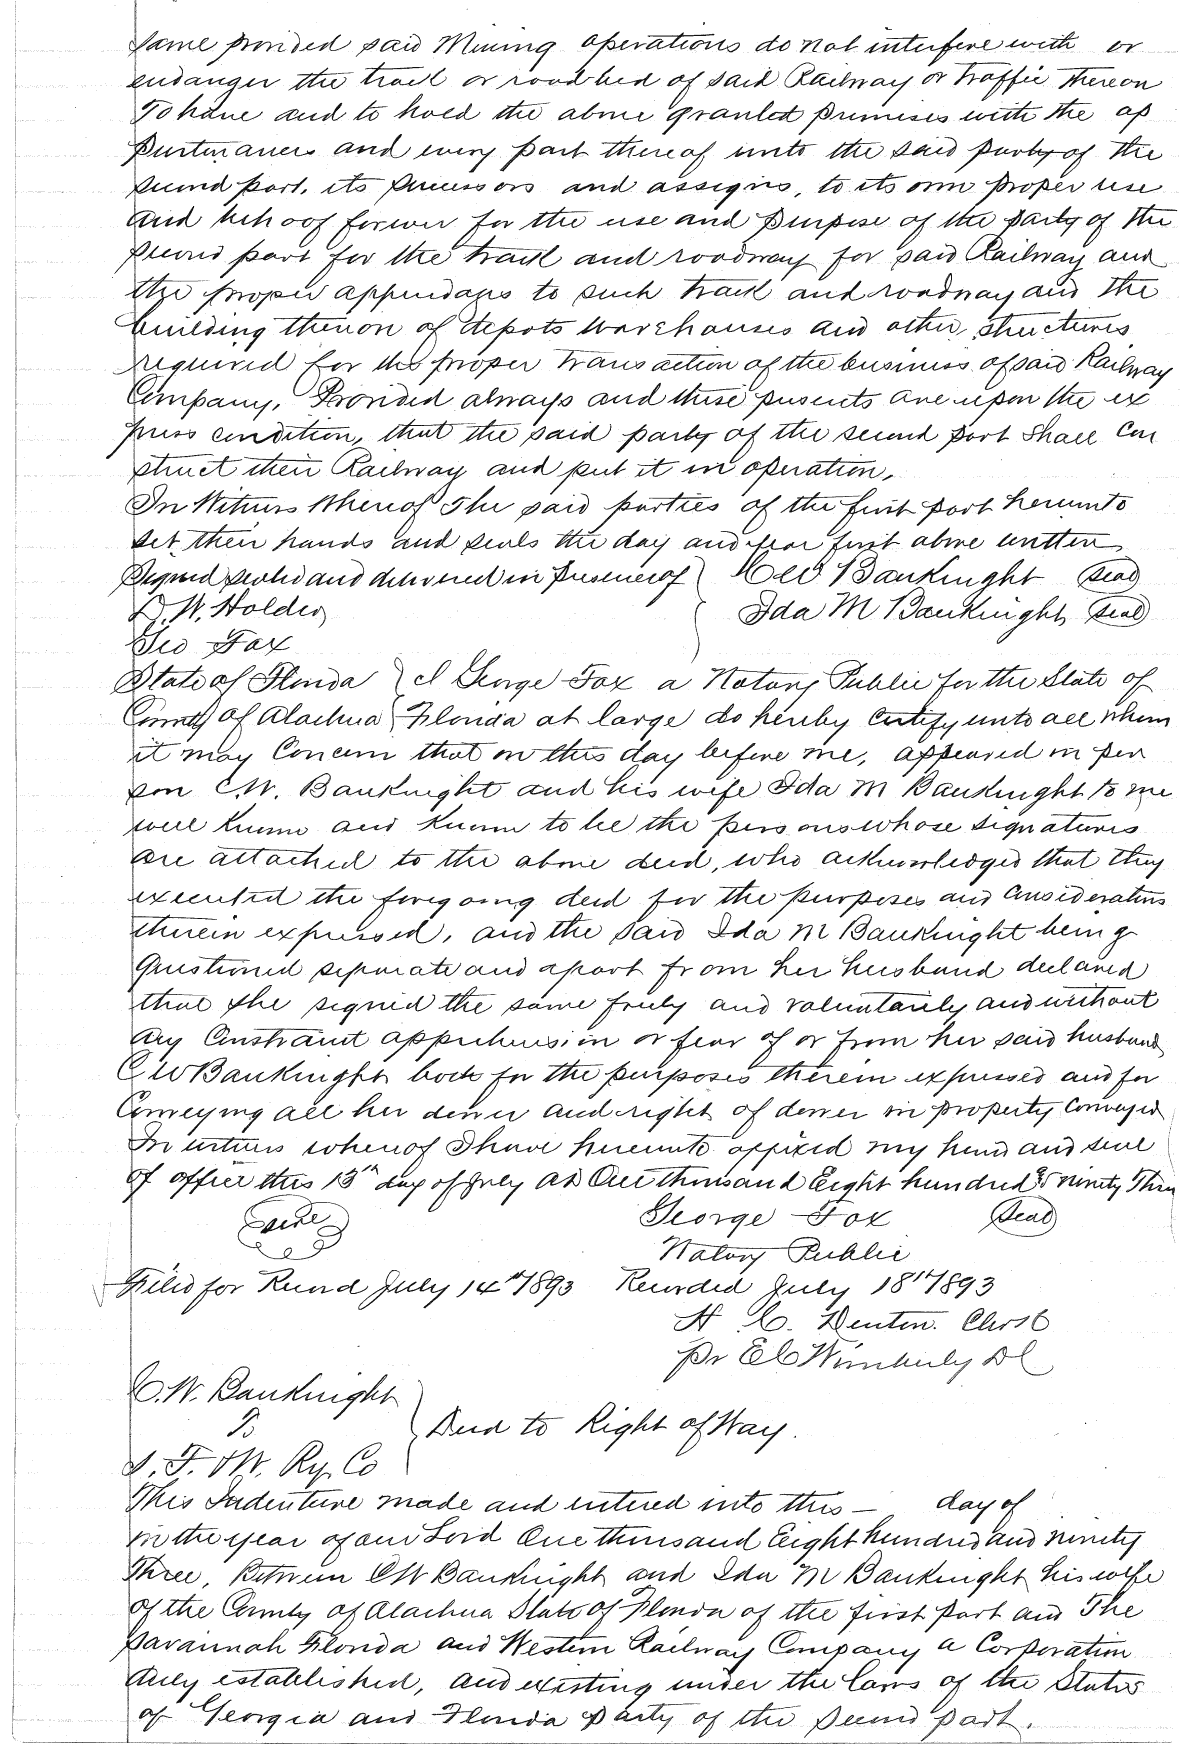 same provided said Mining operations do not interfere with or
endanger the track or roadbed of said Railway or traffic thereon
To have and to hold the above granted premises with the ap
purtenances and every part thereof unto the said party of the
second part, its successors and assigns, to its own proper use
and behoof forever for the use and purpose of the party of the
second part for the track and roadway for said Railway and
the proper appendages to such track and roadway and the
building thereon of depots warehouses and other structures
required for the proper transaction of the business of said Railway
Company. Provided always and these presents are upon the ex
press condition, that the said party of the second part shall con
struct their Railway and put it in operation.
In Witness Whereof The said parties of the first part hereunto
set their hands and seals the day and year first above written
Signed sealed and delivered in presence of } Geo Banknight Seal
D. W. Holder Ida M Banknight Seal
Geo Fox
State of Florida } I George Fox a Notary Public for the State of
County of Alachua } Florida at large do hereby certify unto all whom
it may concern that on this day before me, appeared in per
son C.W. Banknight and his wife Ida M Banknight to me
well known and known to be the persons whose signatures
are attached to the above deed, who acknowledged that they
executed the foregoing deed for the purposes and considerations
therein expressed, and the said Ida M Banknight being
questioned separate and apart from her husband declared
that she signed the same freely and voluntarily and without
any constraint apprehension or fear of or from her said husband
C W Banknight both for the purposes therein expressed and for
conveying all her dower and right of dower in property conveyed
In witness whereof I have hereunto affixed my hand and seal
of office this 13th day of July AD One thousand Eight hundred & ninety Three
Seal George Fox Seal
Notary Public
Filed for Record July 14th 1893 Recorded July 18th 1893
H. C. Denton. Clerk
Pr E C Wimberly DC
C. W. Banknight
To } Deed to Right of Way.
S. F. & W. Ry. Co
This Indenture made and entered into this — day of
in the year of our Lord One thousand Eight hundred and ninety
Three, Between C W Banknight and Ida M Banknight his wife
of the County of Alachua State of Florida of the first part and The
Savannah Florida and Western Railway Company a Corporation
duly established, and existing under the laws of the States
of Georgia and Florida party of the second part.